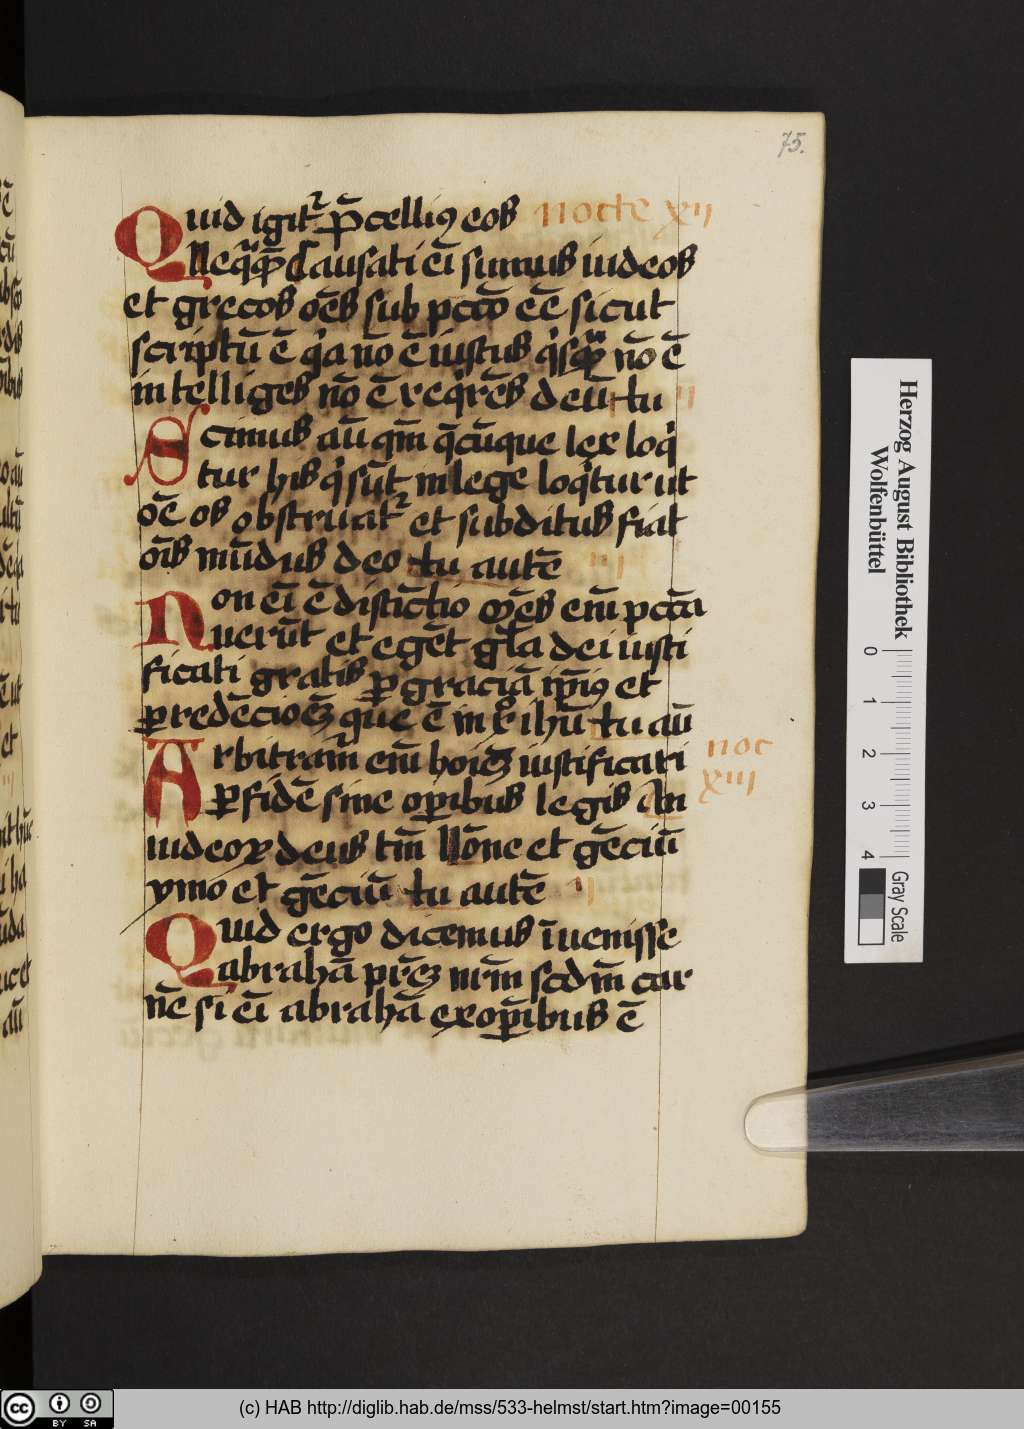 75.
Quid igit᷑ p̄cellim9 eos nocte xii
Neq̄q̄ꝫ Causati ei̅ sumus iudeos
et grecos oēs sub pctō eē sicut
scriptū ē q̓a nō ē iustus q̓sqꝫ nō ē
intelliges nō ē req̓rēs deū tu ii
Scimus aū qm̄ q̄cūque lex loq̓
tur his q̓ sūt in lege loq̓tur ut
oē os obstruat᷑ et subditus fiat
ois̄ mūdus deo tu autē iii
Non ei̅ ē distīctio oēs em̄ pctā
uerūt et egēt glā dei iusti
ficati gratis ꝑ graciā ip̄i9 et
ꝑ redēcioēꝫ que ē in xp̄o ihū tu aū
Arbitram̄ em̄ hoiēꝫ iustificari noc
ꝑ fidē sine oꝑibus legis An xiii
iudeoꝝ deus tm̄ Nōne et gēciū
ymo et gēciū tu autē ii
Quid ergo dicemus īuenisse
abrahā pr̄eꝫ nr̄m scdm̄ car
nē si ei̅ abrahā ex oꝑibus ē
Herzog August Bibliothek
Wolfenbüttel
0 1 2 3 4
Gray Scale
cc BY SA
(c) HAB http://diglib.hab.de/mss/533-helmst/start.htm?image=00155